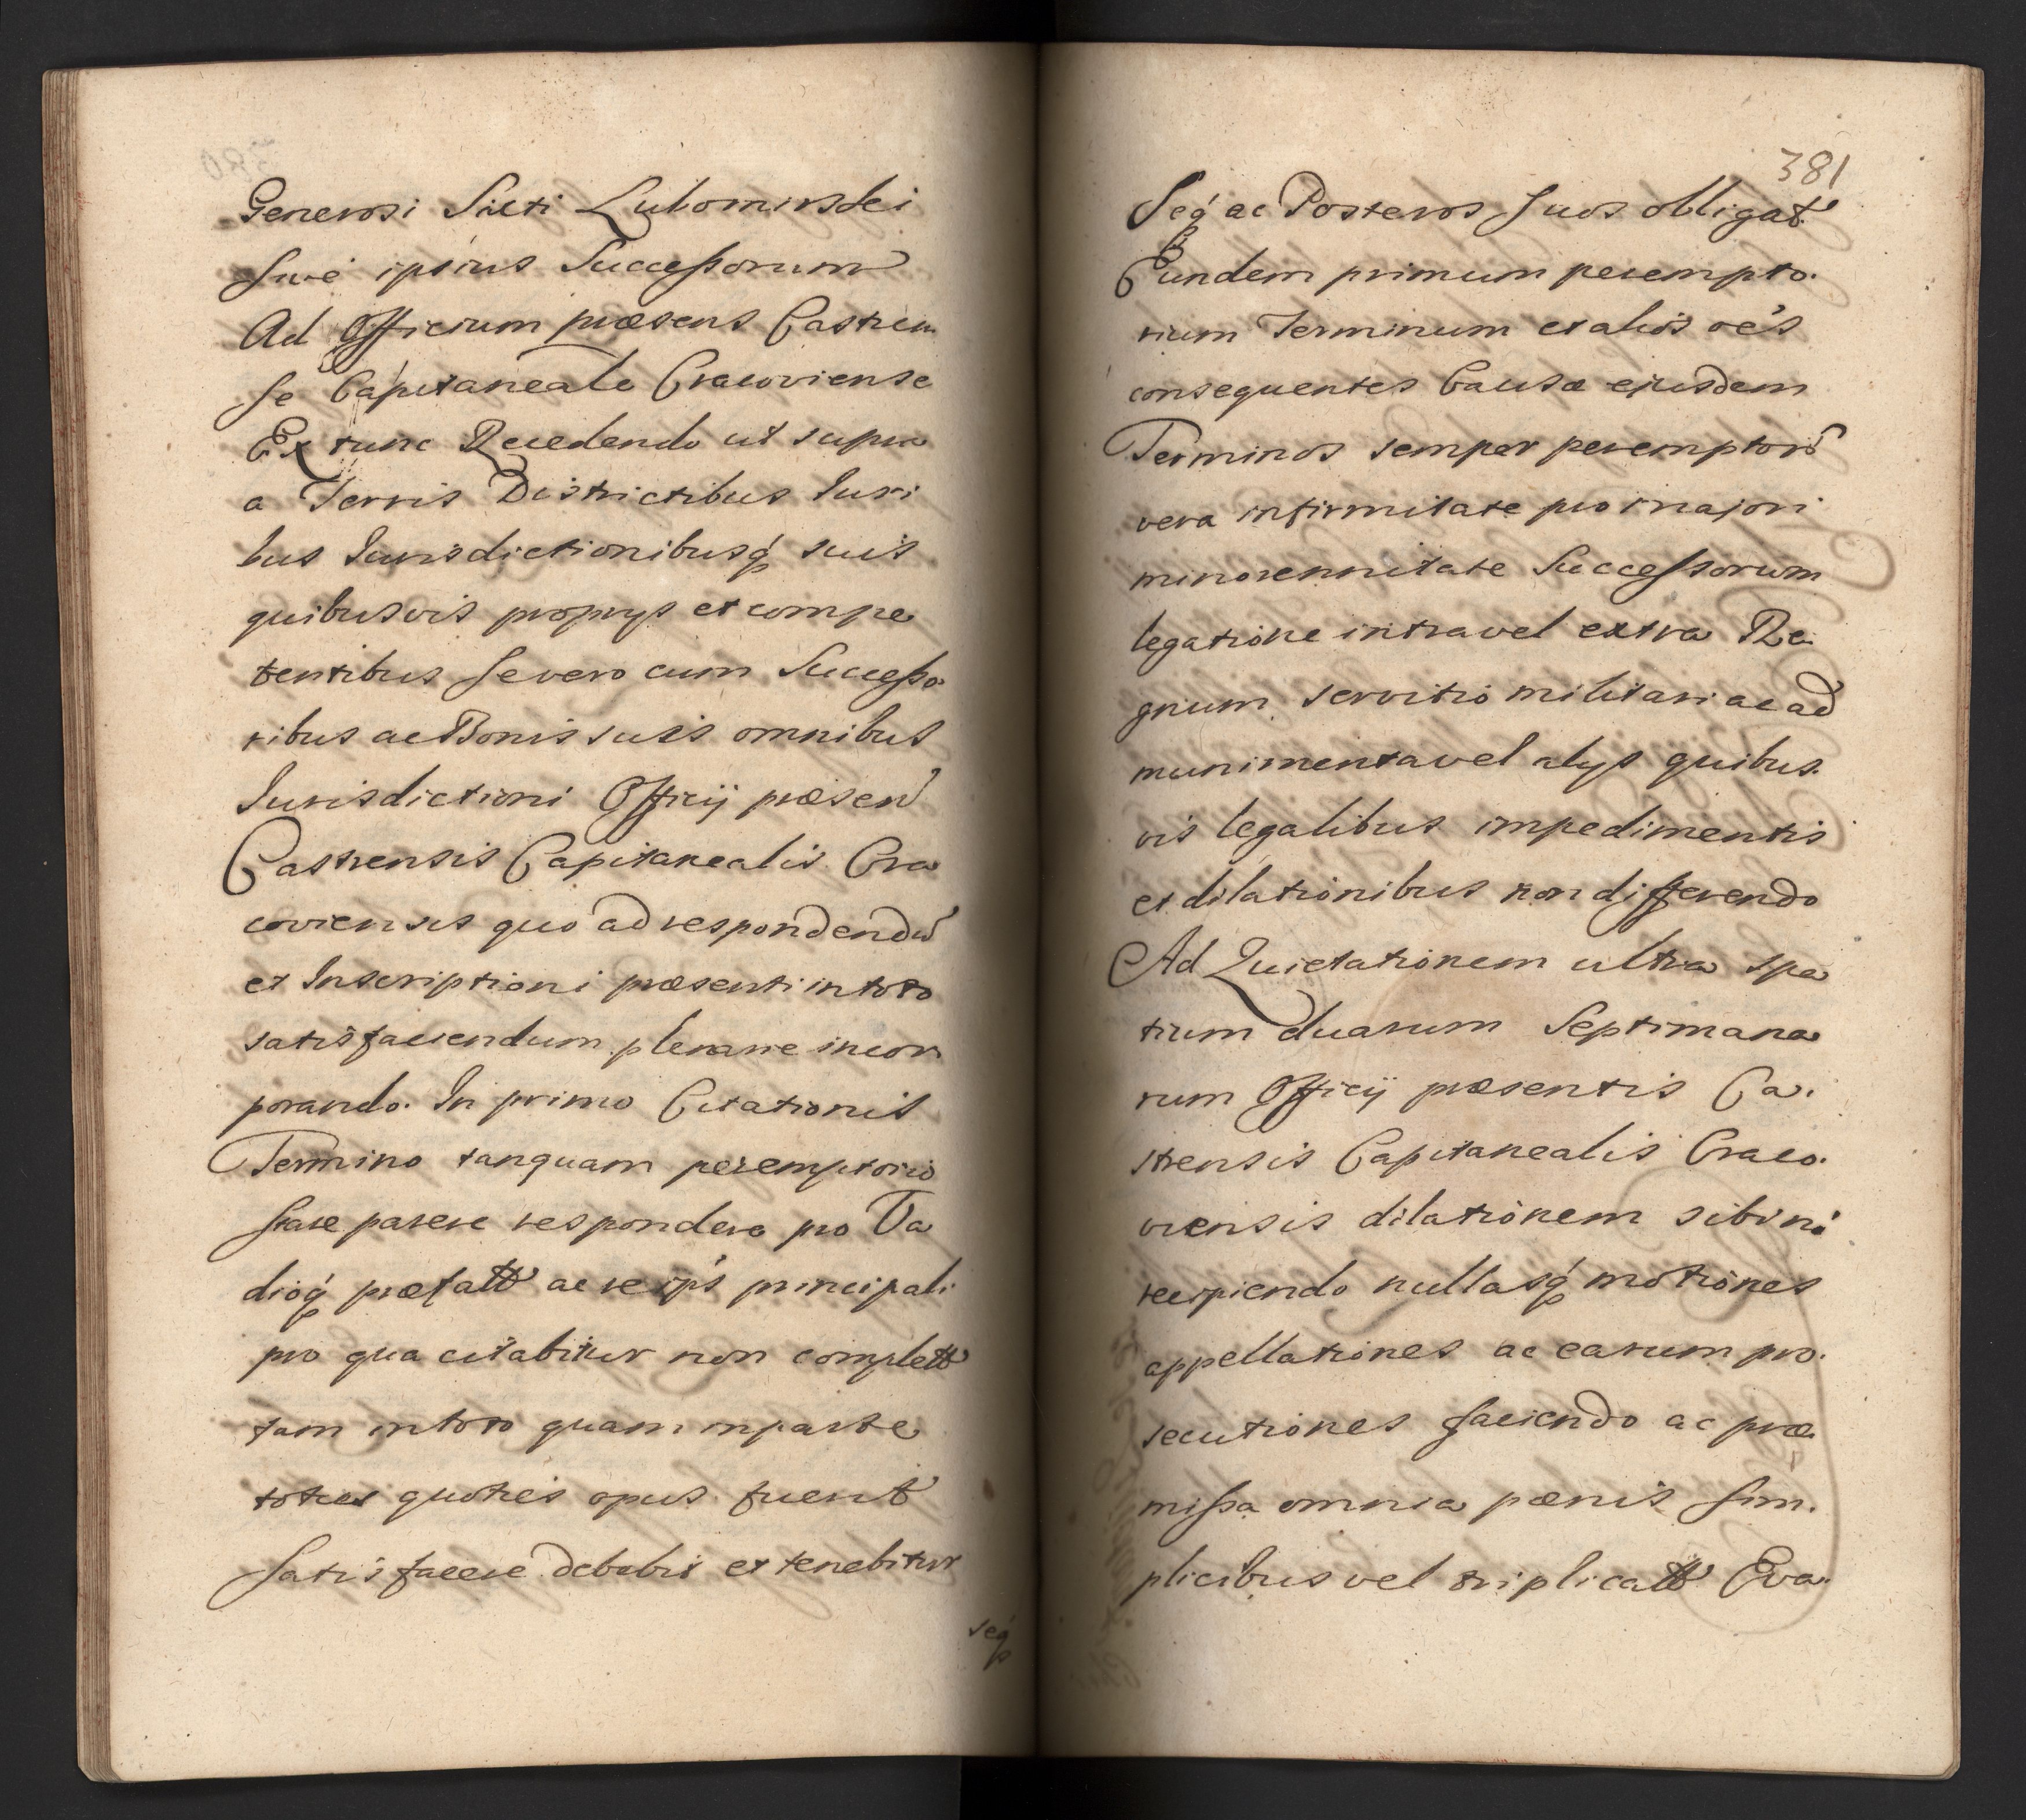 Generosi Sixti Lubomirskei
Sivé ipsius Successorum
Ad Officium præsens Castren
se Capitaneale Cracoviense
Ex tunc Recedendo ut supra
a Terris Districtibus Juri
bus Jurisdictionibusq́ suis
quibusvis proprys et compe
tentibus Severo cum Successo
ribus ac Bonis suis omnibus
Jurisdictioni Officij præsen
Castrensis Capitanealis Cra
coviensis quo ad respondendū
et Inscriptioni præsenti in toto
satisfaciendum plenarie incor
porando. In primo Citationis
Termino tanquam peremptorio
stare parere respondere pro Va
dioq́ præfatt ac re ips principali
pro qua citabitur non complett
tam in toto quam in parte
toties quoties opus fuerit
Satisfacere debebit et tenebitur
seq́
381
Seq́ ac Posteros suos obligat
Eundem primum perempto.
rium Terminum et alios oe's
consequentes Causæ ejusdem
Terminos semper peremptoró
vera infirmitate pro majori
minorennitate Successorum
legatione intra vel extra Re
gnum servitio militari ac ad
munimenta vel alys quibus.
vis legalibus impedimentis
et dilationibus non differendo
Ad Quietationem ultra spa
tium duarum Septimana
rum Officij præsentis Ca.
strensis Capitanealis Craco.
viensis dilationem sibi nó
recipiendo nullasq́ motiones
appellationes ac earum pro.
secutiones faciendo ac præ
missa omnia pænis sim.
plicibus vel triplicatt Eva.